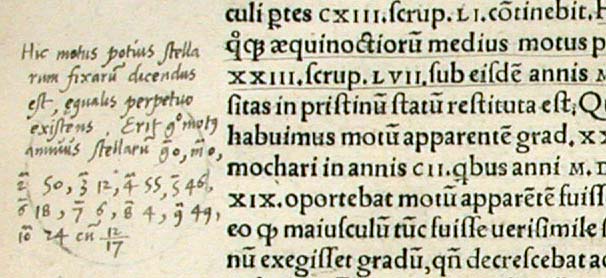 Hic motus potius stella
rum fixarũ dicendus
est, equalis perpetuo
existens. Erit g° motꝰ
annuus stellarũ g̃ 0, m̃ 0,
2̃ 50, 3̃ 12, 4̃ 55, 5̃ 46,
6̃ 18, 7̃ 6, 8̃ 4, 9̃ 49,
1̃0 24 cũ 12/17
culi ꝑtes CXIII. ſcrup. LI. cõtinebit. H
ꝙ æquinoctiorũ medius motus p
XXIII. ſcrup. LVII. ſub eiſdẽ annis M
ſitas in priſtinũ ſtatũ reſtituta eſt, Q
habuimus motũ apparentẽ grad. XX
mochari in annis CII. qbus anni M. D
XIX. oportebat motũ apparẽtẽ fuiſſ
eo ꝙ maiuſculũ tũc fuiſſe ueriſimile ſ
nũ exegiſſet gradũ, qñ decreſcebat ac